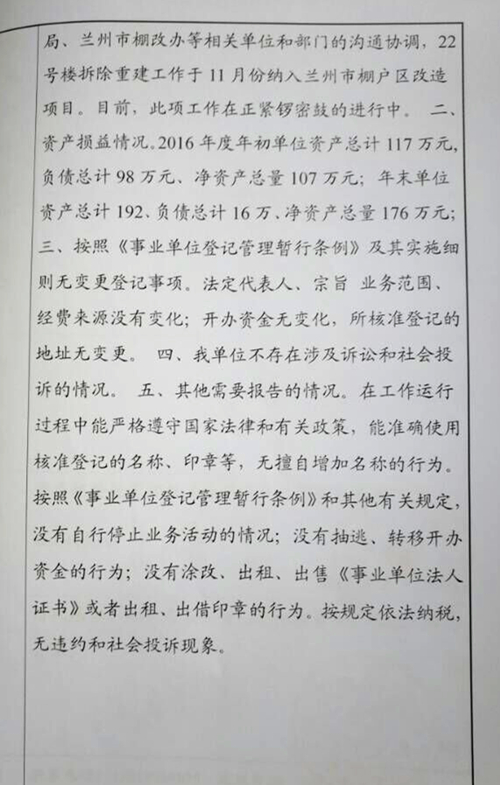 局、兰州市棚改办等相关单位和部门的沟通协调，22
号楼拆除重建工作于 11 月份纳入兰州市棚户区改造
项目。目前，此项工作在正紧锣密鼓的进行中。 二、
资产损益情况。2016 年度年初单位资产总计 117 万元,
负债总计 98 万元、净资产总量 107 万元；年末单位
资产总计 192、负债总计 16 万、净资产总量 176 万元；
三、按照《事业单位登记管理暂行条例》及其实施细
则无变更登记事项。法定代表人、宗旨 业务范围、
经费来源没有变化；开办资金无变化，所核准登记的
地址无变更。 四、我单位不存在涉及诉讼和社会投
诉的情况。 五、其他需要报告的情况。在工作运行
过程中能严格遵守国家法律和有关政策，能准确使用
核准登记的名称、印章等，无擅自增加名称的行为。
按照《事业单位登记管理暂行条例》和其他有关规定，
没有自行停止业务活动的情况；没有抽逃、转移开办
资金的行为；没有涂改、出租、出售《事业单位法人
证书》或者出租、出借印章的行为。按规定依法纳税，
无违约和社会投诉现象。